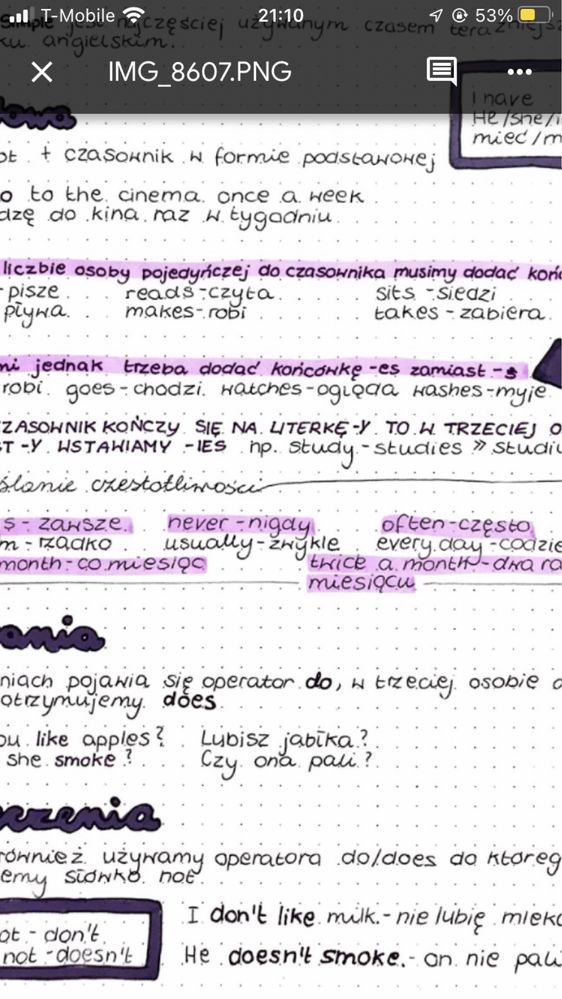 T-Mobile 21:10 53%
Simple jest najczęściej używanym czasem
ku angielskim.
IMG_8607.PNG
I have
He/she/i
mieć/m
owa
ot + czasownik w formie podstawowej
o to the cinema once a week
dzę do kina raz w tygodniu
liczbie osoby pojedyńczej do czasownika musimy dodać koń
- pisze reads - czyta sits - siedzi
pływa makes - robi takes - zabiera
mi jednak trzeba dodać końcówkę -es zamiast -s
robi goes - chodzi watches - ogląda washes - myje
ZASOWNIK KOŃCZY SIĘ NA LITERKĘ -Y TO W TRZECIEJ O
T -Y WSTAWIAMY -IES np. study - studies » studiu
ślanie częstotliwości
s - zawsze never - nigdy often - często
m - rzadko usually - zwykle every day - codzie
month - co miesiąc twice a month - dwa ra
miesiącu
ania
niach pojawia się operator do, w trzeciej osobie
otrzymujemy does
ou like apples? Lubisz jabłka?
she smoke? Czy ona pali?
czenia
również używamy operatora do/does do któreg
emy słówko not
ot - don't I don't like milk. - nie lubię mleka
not - doesn't He doesn't smoke. - on nie pali